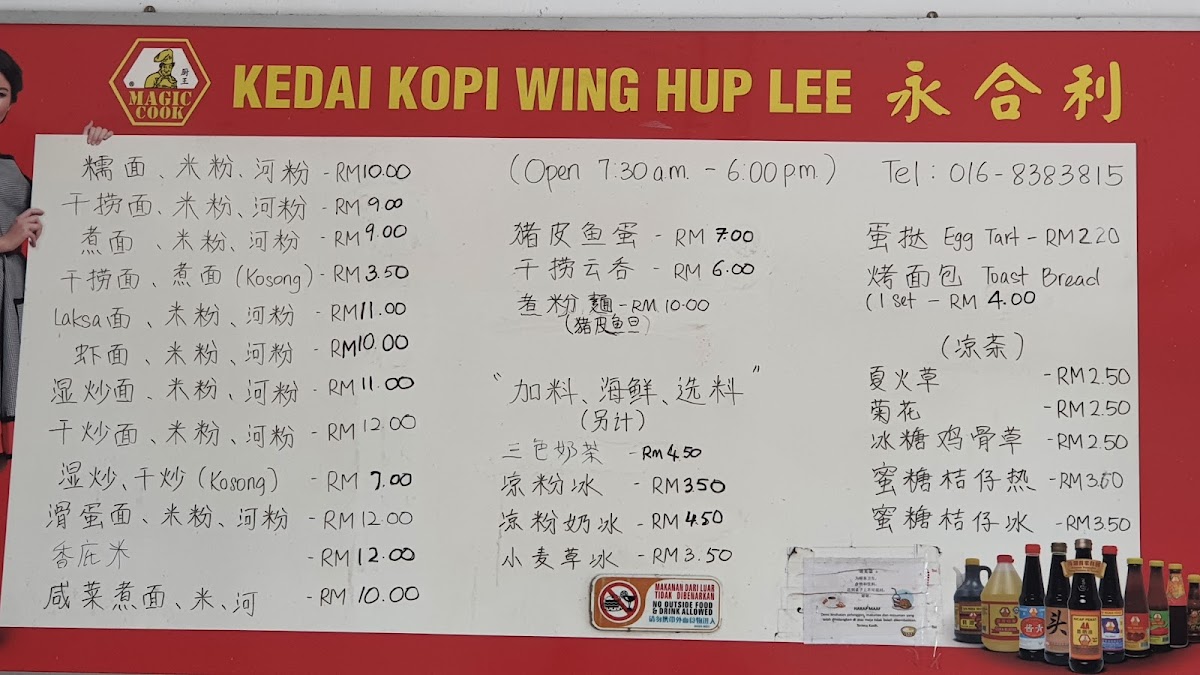 厨王
MAGIC
COOK
KEDAI KOPI WING HUP LEE 永合利
糯面、米粉、河粉 - RM10.00
干捞面、米粉、河粉 - RM 9.00
煮面、米粉、河粉 - RM 9.00
干捞面、煮面 (Kosong) - RM 3.50
Laksa面、米粉、河粉 - RM11.00
虾面、米粉、河粉 - RM10.00
湿炒面、米粉、河粉 - RM 11.00
干炒面、米粉、河粉 - RM 12.00
湿炒、干炒 (Kosong) - RM 7.00
滑蛋面、米粉、河粉 - RM 12.00
香庇米 - RM 12.00
咸菜煮面、米、河 - RM 10.00
(Open 7:30 a.m. - 6:00 pm.)
猪皮鱼蛋 - RM 7.00
干捞云吞 - RM 6.00
煮粉麵 - RM 10.00
(猪皮鱼旦)
"加料、海鲜、选料"
(另计)
三色奶茶 - RM 4.50
凉粉冰 - RM 3.50
凉粉奶冰 - RM 4.50
小麦草冰 - RM 3.50
Tel : 016-8383815
蛋挞 Egg Tart - RM 2.20
烤面包 Toast Bread
(1 set - RM 4.00
(凉茶)
夏火草 - RM 2.50
菊花 - RM 2.50
冰糖鸡骨草 - RM 2.50
蜜糖桔仔热 - RM 3.50
蜜糖桔仔冰 - RM 3.50
MAKANAN DARI LUAR
TIDAK DIBENARKAN
NO OUTSIDE FOOD
& DRINK ALLOWED
请勿携带外面食物进入
HARAP MAAF
酱青
头